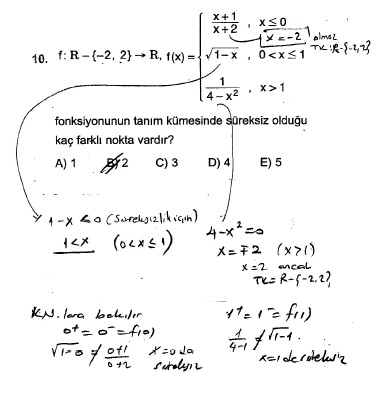 10. f: R – {–2, 2} → R, f(x) =
x + 1 / x + 2 , x ≤ 0
x = -2 olmaz
TK: R-{-2,2}
√1 – x , 0 < x ≤ 1
1 / 4 – x² , x > 1
fonksiyonunun tanım kümesinde süreksiz olduğu
kaç farklı nokta vardır?
A) 1 B) 2 C) 3 D) 4 E) 5
1-x ≤ 0 (Süreksizlik için)
1<x (0<x≤1)
4-x²=0
x=∓2 (x>1)
x=2 ancak
TK=R-{-2,2}
K.N. lara bakılır
0⁺ = 0⁻ = f(0)
√1-0 ≠ 0+1 / 0+2 x=0 da süreksiz
1⁺ = 1⁻ = f(1)
1 / 4-1 ≠ √1-1
x=1 de süreksiz